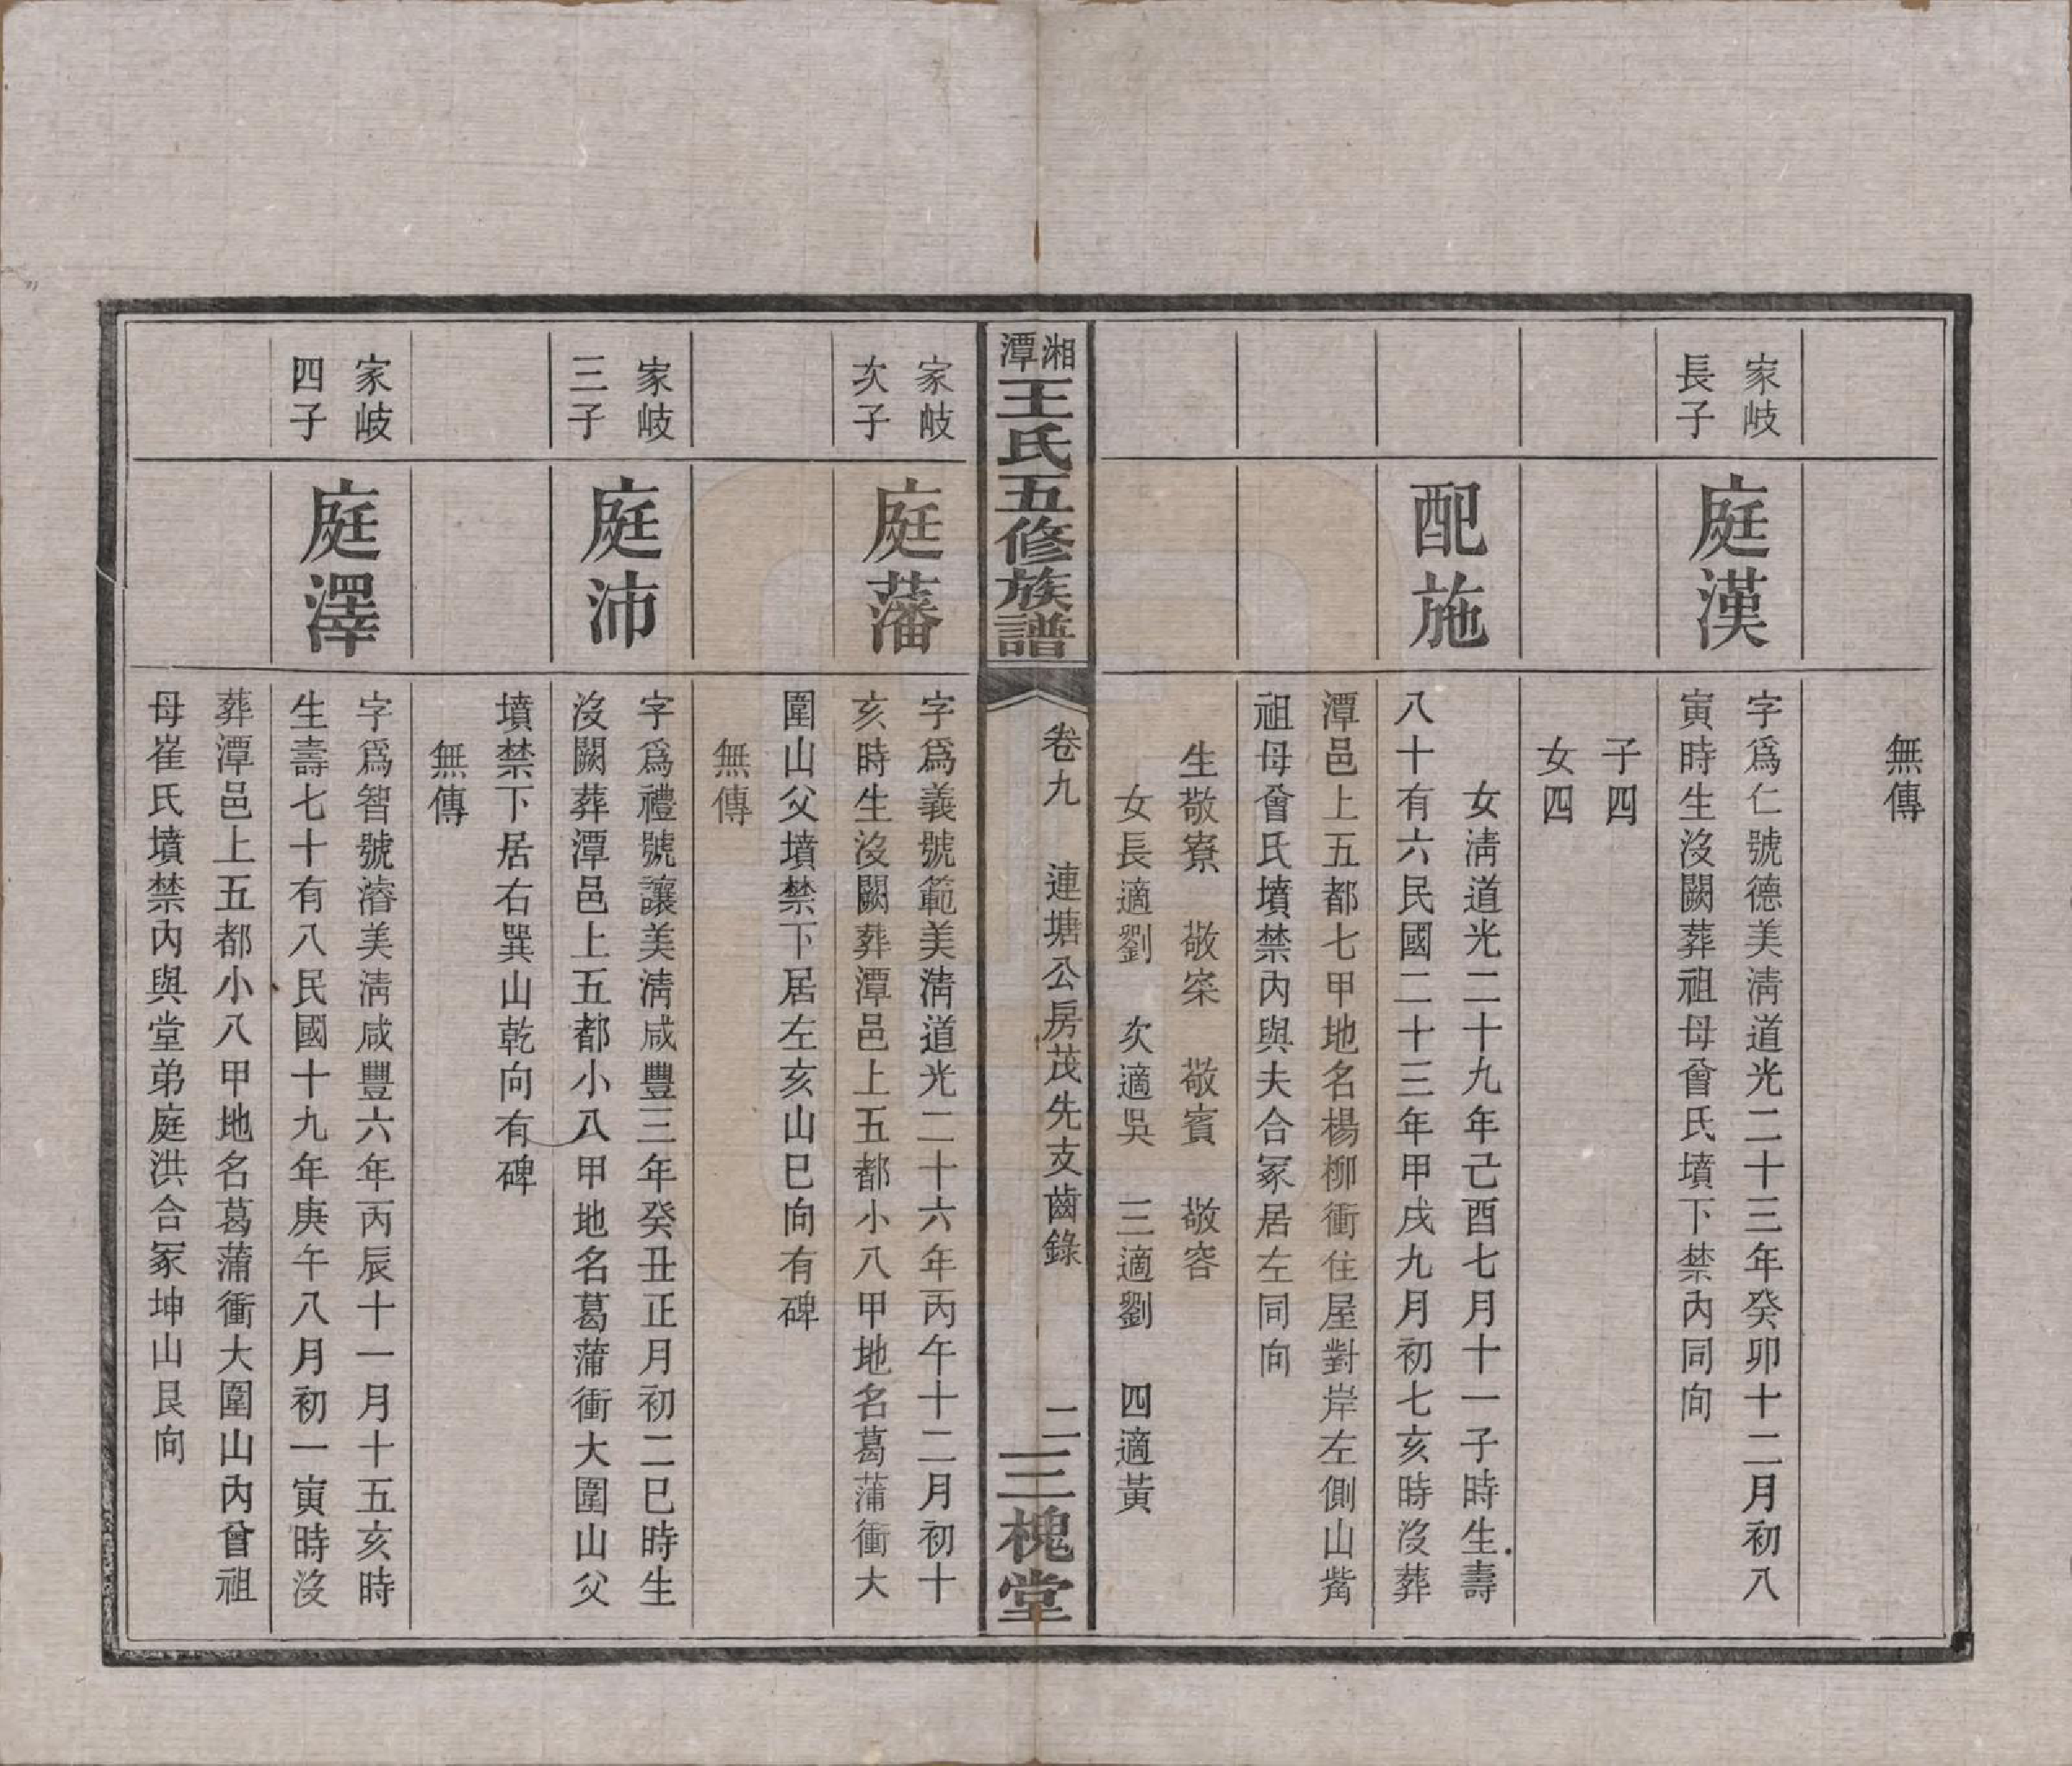 無傳
家岐
長子
庭漢
字爲仁號德美淸道光二十三年癸卯十二月初八
寅時生沒闕葬祖母曾氏墳下禁內同向
子四
女四
配施
女淸道光二十九年己酉七月十一子時生壽
八十有六民國二十三年甲戌九月初七亥時沒葬
潭邑上五都七甲地名楊柳衝住屋對岸左側山觜
祖母曾氏墳禁內與夫合冢居左同向
生敬寮 敬寀 敬賓 敬容
女長適劉 次適吳 三適劉 四適黃
湘潭王氏五修族譜
卷九 連塘公房茂先支齒錄 二
三槐堂
家岐
次子
庭藩
字爲義號範美淸道光二十六年丙午十二月初十
亥時生沒闕葬潭邑上五都小八甲地名葛蒲衝大
圍山父墳禁下居左亥山巳向有碑
無傳
家岐
三子
庭沛
字爲禮號讓美淸咸豐三年癸丑正月初二巳時生
沒闕葬潭邑上五都小八甲地名葛蒲衝大圍山父
墳禁下居右巽山乾向有碑
無傳
家岐
四子
庭澤
字爲智號濬美淸咸豐六年丙辰十一月十五亥時
生壽七十有八民國十九年庚午八月初一寅時沒
葬潭邑上五都小八甲地名葛蒲衝大圍山內曾祖
母崔氏墳禁內與堂弟庭洪合冢坤山艮向